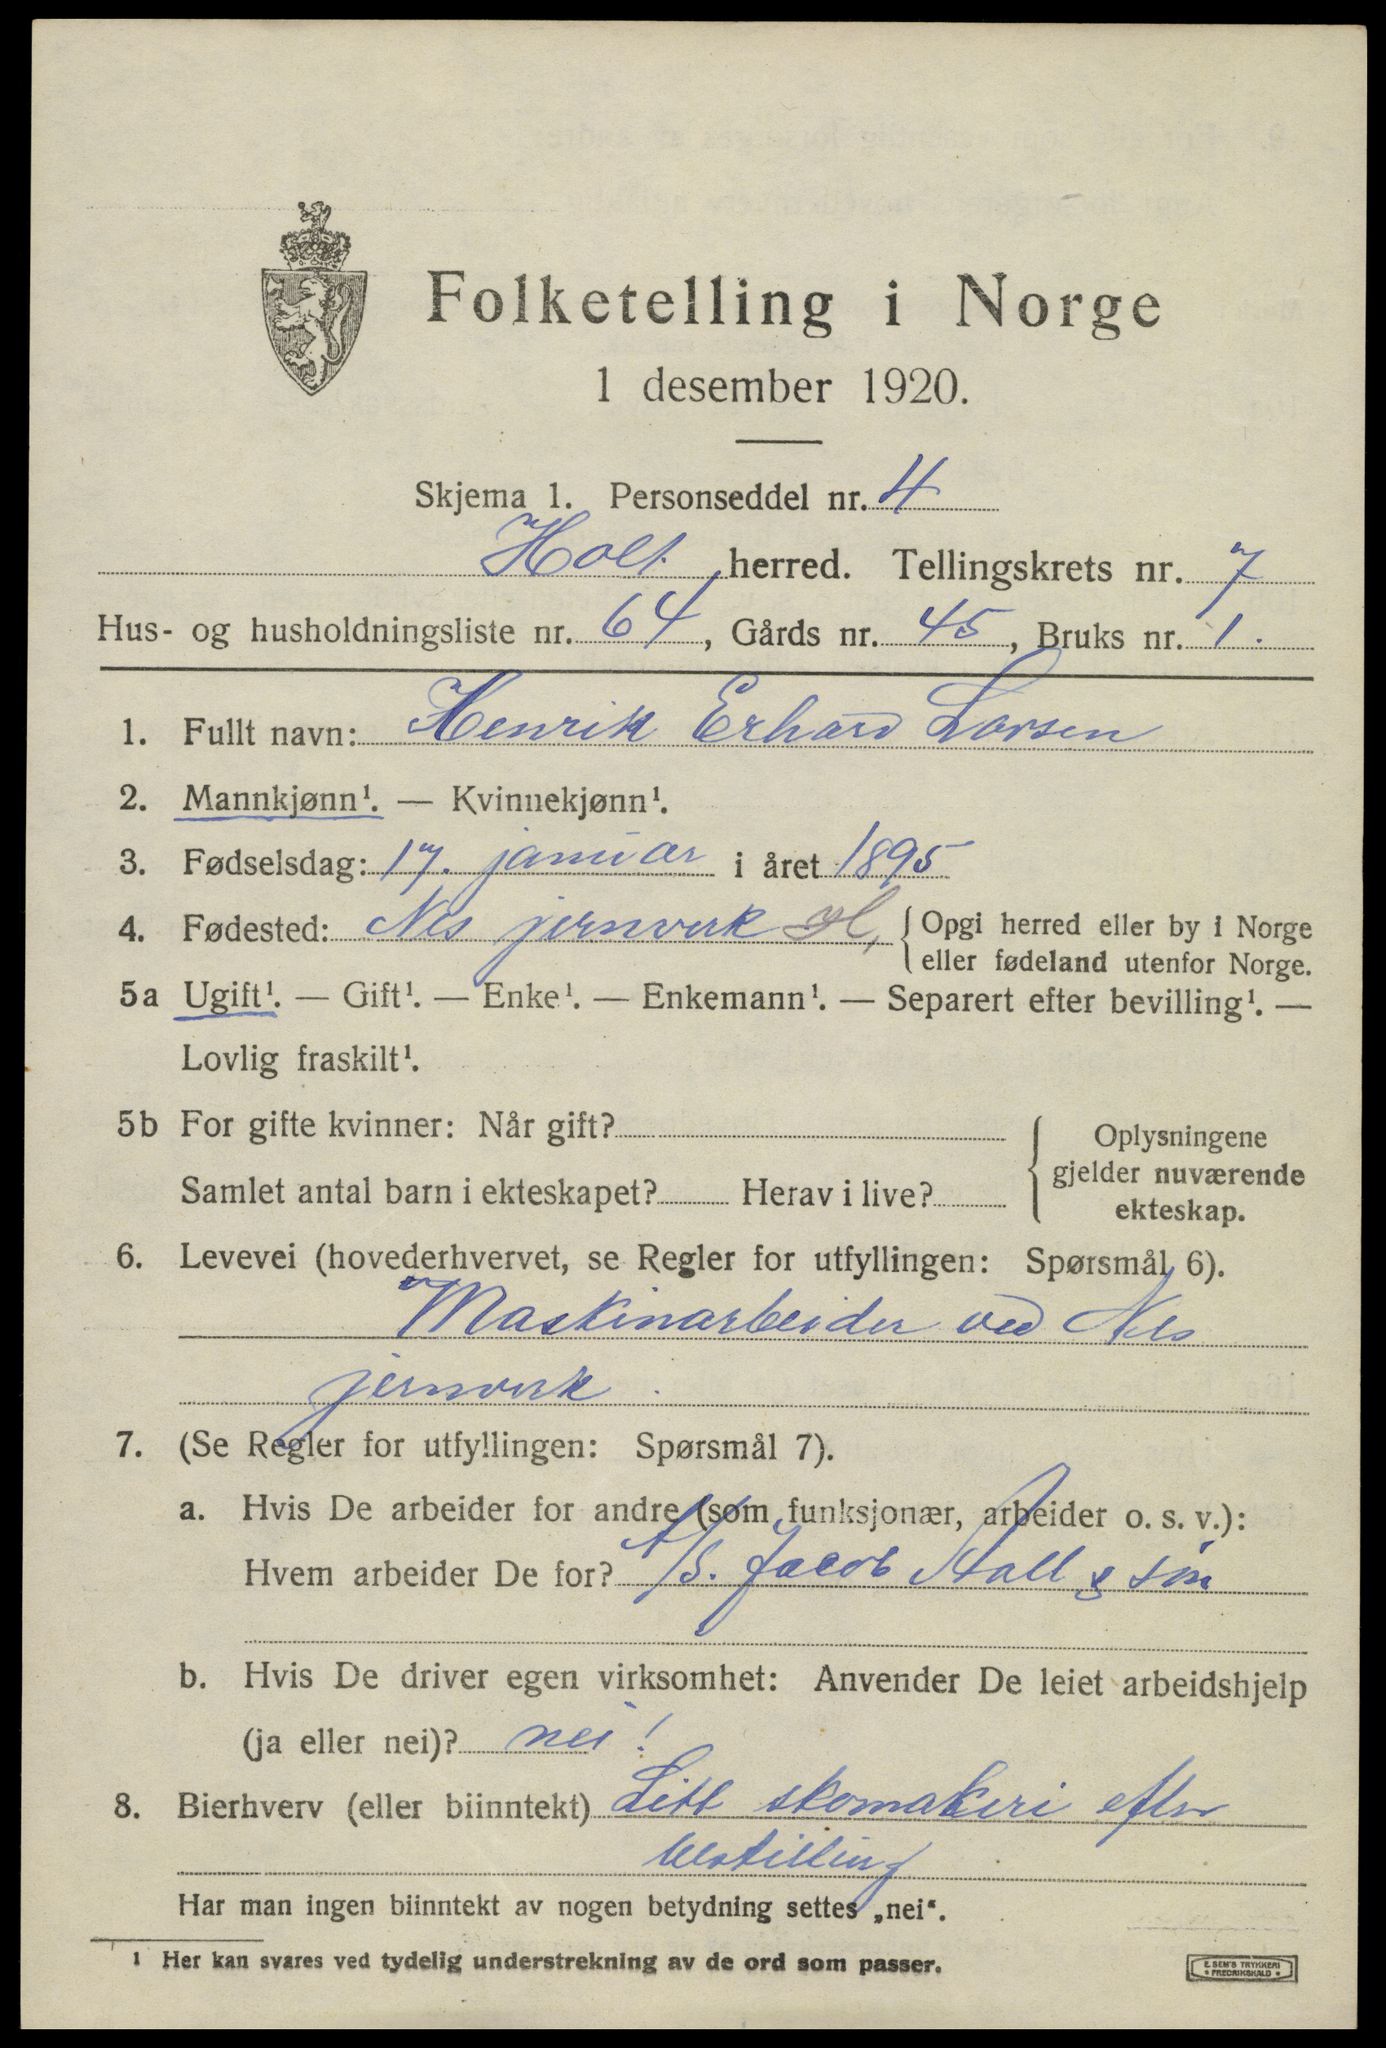 Folketelling i Norge
1 desember 1920.
Skjema 1. Personseddel nr. 4
Holt herred. Tellingskrets nr. 7
Hus- og husholdningsliste nr. 64, Gårds nr. 45, Bruks nr. 1.
1. Fullt navn: Henrik Erhard Larsen
2. Mannkjønn¹. — Kvinnekjønn¹.
3. Fødselsdag: 17. januar i året 1895
4. Fødested: Nes jernverk H, { Opgi herred eller by i Norge
eller fødeland utenfor Norge.
5a Ugift¹. — Gift¹. — Enke¹. — Enkemann¹. — Separert efter bevilling¹. —
Lovlig fraskilt¹.
5b For gifte kvinner: Når gift?
Samlet antal barn i ekteskapet? Herav i live?
{ Oplysningene
gjelder nuværende
ekteskap.
6. Levevei (hovederhvervet, se Regler for utfyllingen: Spørsmål 6).
Maskinarbeider ved Nes
jernverk.
7. (Se Regler for utfyllingen: Spørsmål 7).
a. Hvis De arbeider for andre (som funksjonær, arbeider o. s. v.):
Hvem arbeider De for? A/S. Jacob Aall & søn
b. Hvis De driver egen virksomhet: Anvender De leiet arbeidshjelp
(ja eller nei)? nei!
8. Bierhverv (eller biinntekt) Litt skomakeri efter
bestilling
Har man ingen biinntekt av nogen betydning settes „nei“.
1 Her kan svares ved tydelig understrekning av de ord som passer.
E. SEM'S TRYKKERI
• FREDRIKSHALD •